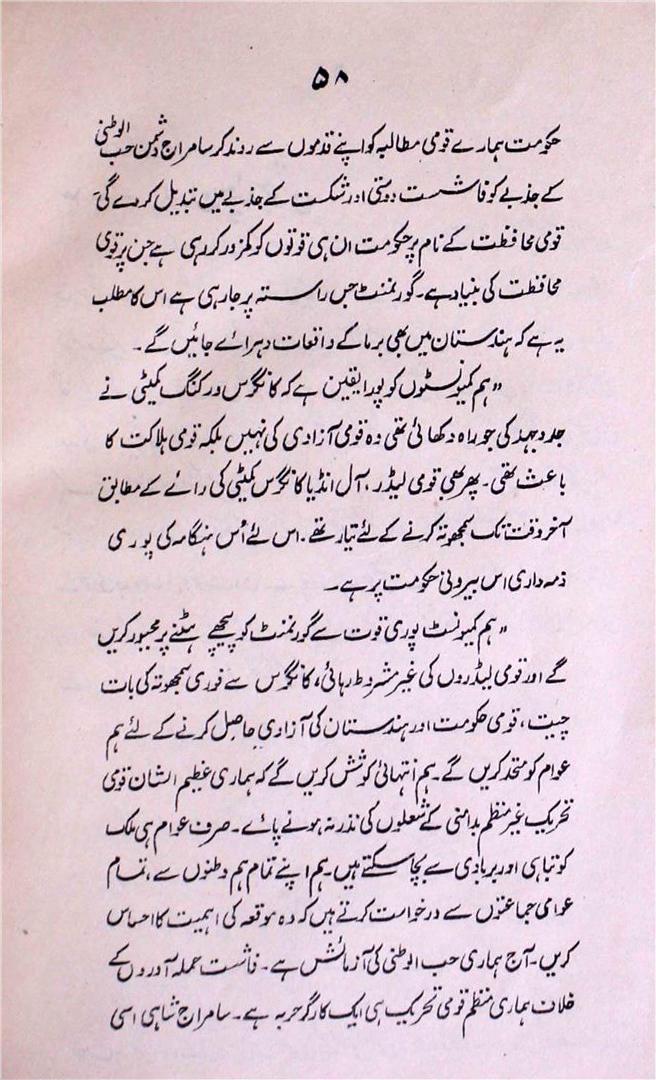 ۵۸
حکومت ہمارے قومی مطالبہ کو اپنے قدموں سے روند کر سامراج دشمن حب الوطنی
کے جذبے کو فاشست دوستی اور شکست کے جذبے میں تبدیل کر دے گی۔
قومی محافظت کے نام پر حکومت ان ہی قوتوں کو کمزور کر رہی ہے جن پر قومی
محافظت کی بنیاد ہے۔ گورنمنٹ جس راستہ پر جا رہی ہے اس کا مطلب
یہ ہے کہ ہندستان میں بھی برما کے واقعات دہرائے جائیں گے۔
”ہم کمیونسٹوں کو پورا یقین ہے کہ کانگرس ورکنگ کمیٹی نے
جدوجہد کی جو راہ دکھائی تھی وہ قومی آزادی کی نہیں بلکہ قومی ہلاکت کا
باعث تھی۔ پھر بھی قومی لیڈر، آل انڈیا کانگرس کمیٹی کی رائے کے مطابق
آخر وقت تک سمجھوتہ کرنے کے لئے تیار تھے۔ اس لئے اُس ہنگامہ کی پوری
ذمہ داری اس بیرونی حکومت پر ہے۔
”ہم کمیونسٹ پوری قوت سے گورنمنٹ کو پیچھے ہٹنے پر مجبور کریں
گے اور قومی لیڈروں کی غیر مشروط رہائی، کانگرس سے فوری سمجھوتہ کی بات
چیت، قومی حکومت اور ہندستان کی آزادی حاصل کرنے کے لئے ہم
عوام کو متحد کریں گے۔ ہم انتہائی کوشش کریں گے کہ ہماری عظیم الشان قومی
تحریک غیر منظم بدامنی کے شعلوں کی نذر نہ ہونے پائے۔ صرف عوام ہی ملک
کو تباہی اور بربادی سے بچا سکتے ہیں۔ ہم اپنے تمام ہم وطنوں سے، تمام
عوامی جماعتوں سے درخواست کرتے ہیں کہ وہ موقعہ کی اہمیت کا احساس
کریں۔ آج ہماری حب الوطنی کی آزمائش ہے۔ فاشست حملہ آوروں کے
خلاف ہماری منظم قومی تحریک ہی ایک کارگر حربہ ہے۔ سامراج شاہی اسی